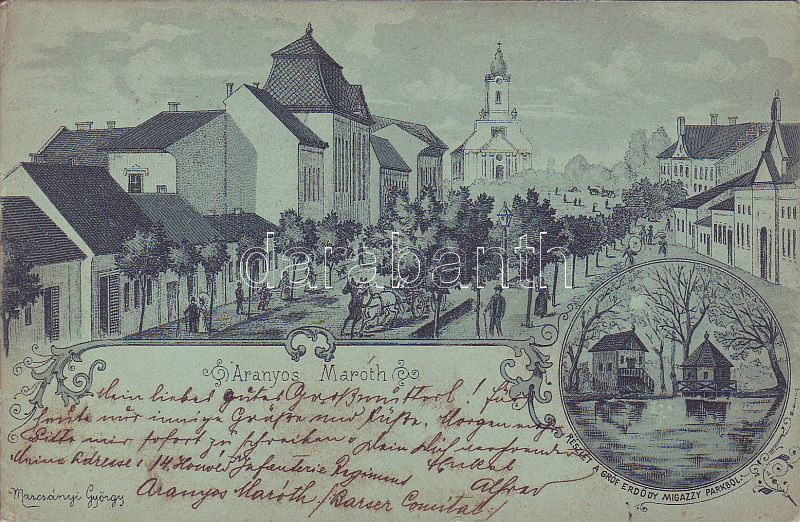 darabanth
Aranyos Maróth
Mein liebes gutes Großmutterl! Für
heute nur innige Grüße und Küße. Morgen mehr
Bitte mir sofort zu schreiben. Dein Dich verehrender
Meine Adresse: 14. Honvéd Infanterie Regiment Enkel
Aranyos Maróth /Barser Comitat/ Alfred
Marcsányi György
RÉSZLET A GRÓF ERDŐDY MIGAZZY PARKBÓL.